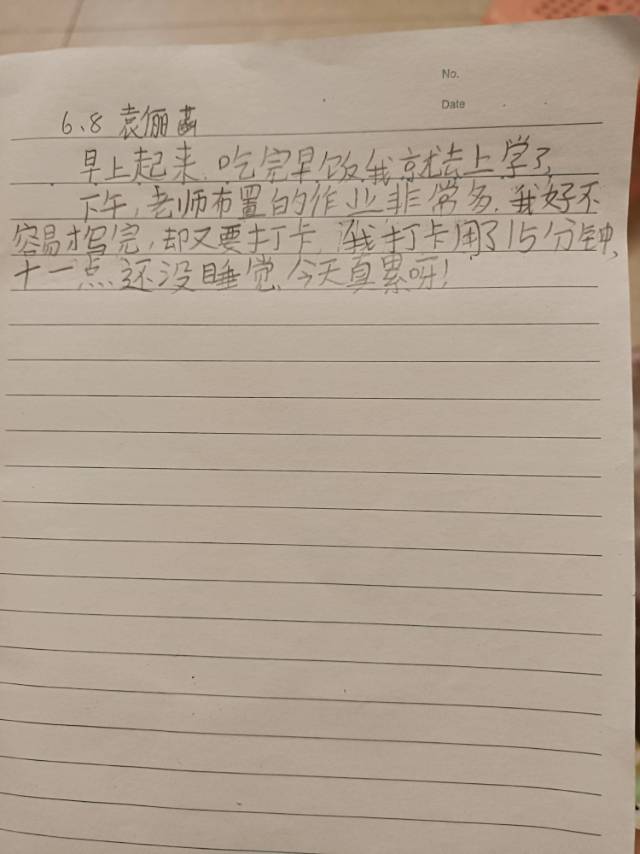 No.
Date
6.8 袁俪菡
早上起来,吃完早饭我就去上学了,
下午,老师布置的作业非常多,我好不
容易才写完,却又要打卡,我打卡用了15分钟,
十一点还没睡觉,今天真累呀!